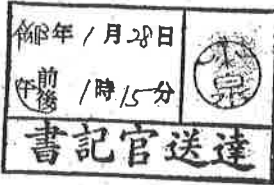 令和3年 1月28日
午前後 1時15分
泉
書記官送達